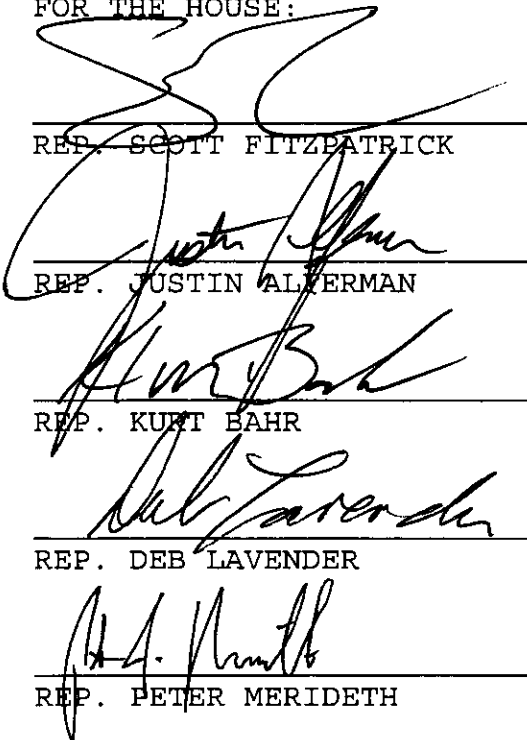 FOR THE HOUSE:
REP. SCOTT FITZPATRICK
Justin Alferman
REP. JUSTIN ALFERMAN
Kurt Bahr
REP. KURT BAHR
Deb Lavender
REP. DEB LAVENDER
REP. PETER MERIDETH